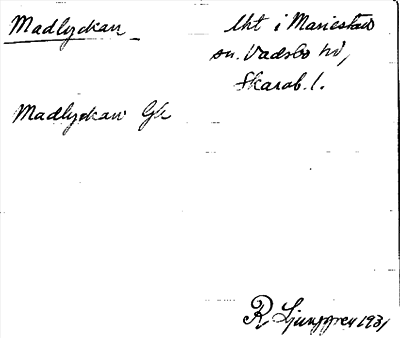 Madlyckan
lht i Mariestad
sn. Vadsbo hd,
Skarab. l.
Madlyckan Gk
R Ljunggren 1931